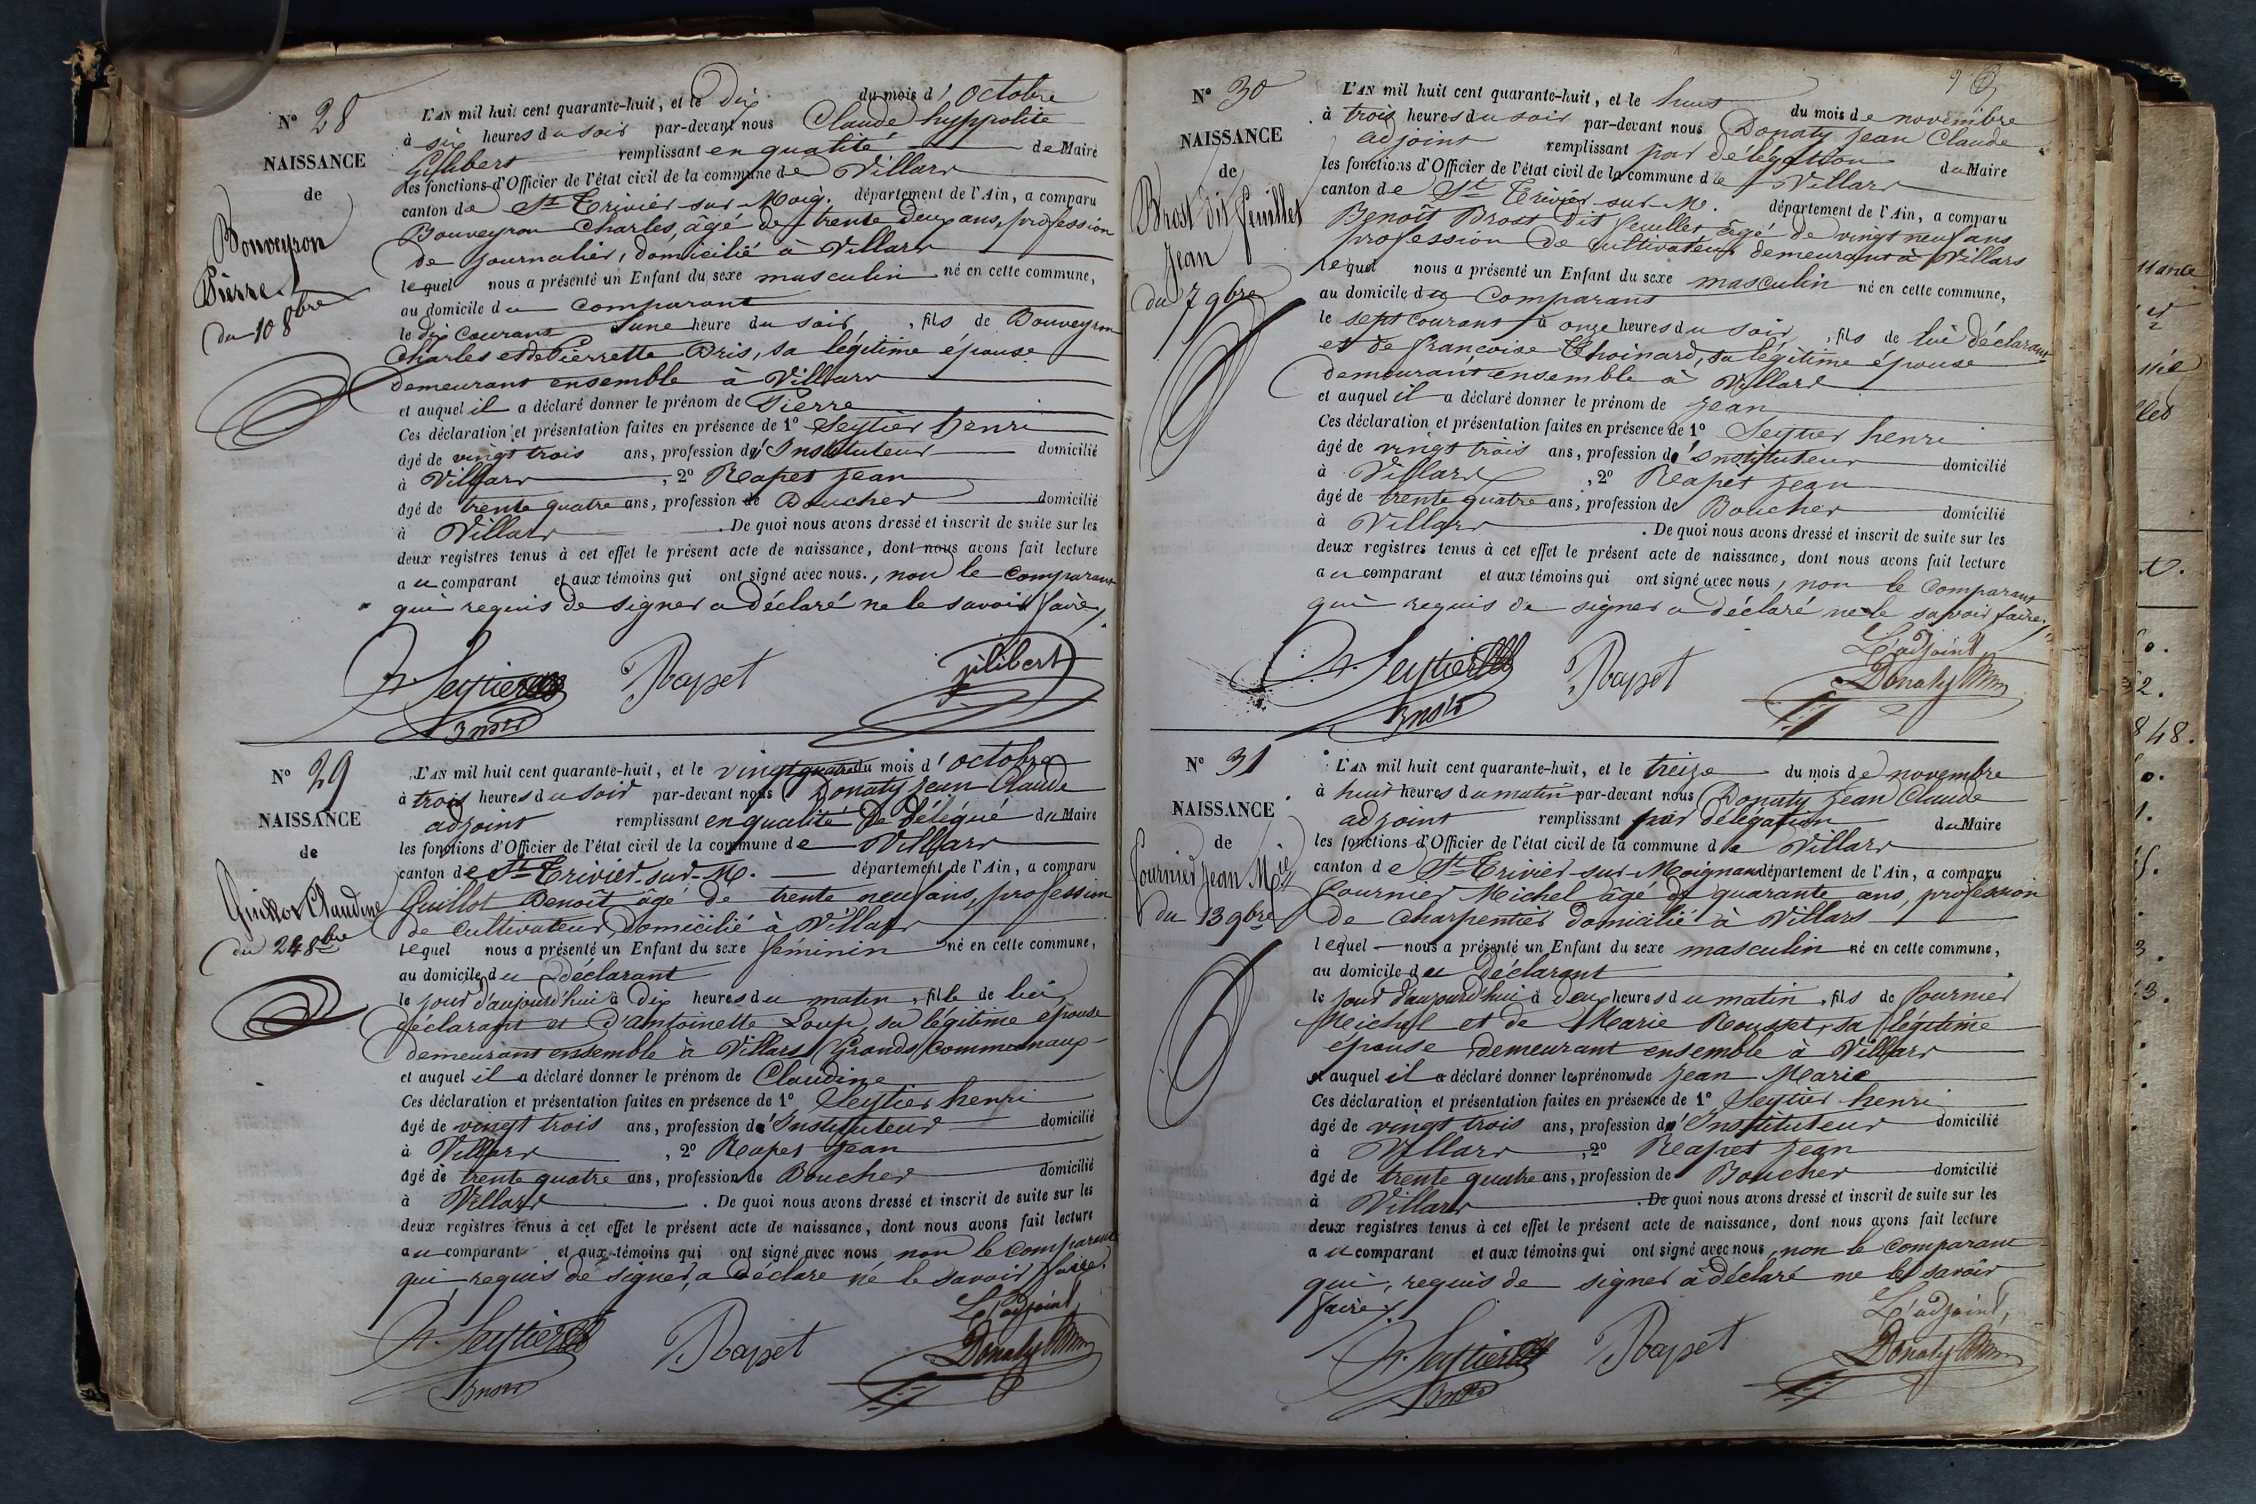 N° 28
NAISSANCE
de
Bouveyron
Pierre
du 10 8bre
L'AN mil huit cent quarante-huit, et le dix du mois d'Octobre
à six heures du soir par-devant nous Claude hyppolite
Gilibert remplissant en qualité de Maire
les fonctions d'Officier de l'état civil de la commune de Villars
canton de St Trivier-sur-Moig. département de l'Ain, a comparu
Bouveyron Charles, âgé de trente deux ans, profession
de journalier, domicilié à Villars
lequel nous a présenté un Enfant du sexe masculin né en cette commune,
au domicile du comparant
le dix courant à une heure du soir, fils de Bouveyron
Charles et de Pierrette Bris, sa légitime épouse
demeurant ensemble à Villars
et auquel il a déclaré donner le prénom de Pierre
Ces déclaration et présentation faites en présence de 1° Seytier henri
âgé de vingt trois ans, profession d'Instituteur domicilié
à Villars, 2° Rapet jean
âgé de trente quatre ans, profession de Boucher domicilié
à Villars. De quoi nous avons dressé et inscrit de suite sur les
deux registres tenus à cet effet le présent acte de naissance, dont nous avons fait lecture
au comparant et aux témoins qui ont signé avec nous., non le comparant
qui requis de signer a déclaré ne le savoir faire,
h. Seytier Rapet gilibert
N° 29
NAISSANCE
de
Guillot Claudine
du 24 8bre
L'AN mil huit cent quarante-huit, et le vingt quatre du mois d'octobre
à trois heures du soir par-devant nous Donaty jean Claude
adjoint remplissant en qualité de délégué du Maire
les fonctions d'Officier de l'état civil de la commune de Villars
canton de St Trivier-sur-M. département de l'Ain, a comparu
Guillot Benoît âgé de trente neuf ans, profession
de cultivateur, domicilié à Villars
lequel nous a présenté un Enfant du sexe féminin né en cette commune,
au domicile du déclarant
le jour d'aujourd'hui à dix heures du matin, fille de lui
déclarant et d'antoinette Loup, sa légitime épouse
demeurant ensemble à Villars (Grands Communaux
et auquel il a déclaré donner le prénom de Claudine
Ces déclaration et présentation faites en présence de 1° Seytier henri
âgé de vingt trois ans, profession d'Instituteur domicilié
à Villars, 2° Rapet jean
âgé de trente quatre ans, profession de Boucher domicilié
à Villars. De quoi nous avons dressé et inscrit de suite sur les
deux registres tenus à cet effet le présent acte de naissance, dont nous avons fait lecture
au comparant et aux témoins qui ont signé avec nous non le comparant
qui, requis de signer, a déclaré ne le savoir faire.
L'adjoint
h. Seytier Rapet Donaty
N° 30
NAISSANCE
de
Brost dit feuillet
Jean
du 7 9bre
L'AN mil huit cent quarante-huit, et le huit du mois de novembre
à trois heures du soir par-devant nous Donaty jean Claude
adjoint remplissant par délégation du Maire
les fonctions d'Officier de l'état civil de la commune de Villars
canton de St Trivier-sur-M. département de l'Ain, a comparu
Benoît Brost dit feuillet âgé de vingt neuf ans
profession de cultivateur demeurant à Villars
lequel nous a présenté un Enfant du sexe masculin né en cette commune,
au domicile du comparant
le sept courant à onze heures du soir, fils de lui déclarant
et de françoise Thoinard, sa légitime épouse
demeurant ensemble à Villars
et auquel il a déclaré donner le prénom de jean
Ces déclaration et présentation faites en présence de 1° Seytier henri
âgé de vingt trois ans, profession d'instituteur domicilié
à Villars, 2° Rapet jean
âgé de trente quatre ans, profession de Boucher domicilié
à Villars. De quoi nous avons dressé et inscrit de suite sur les
deux registres tenus à cet effet le présent acte de naissance, dont nous avons fait lecture
au comparant et aux témoins qui ont signé avec nous, non le comparant
qui requis de signer a déclaré ne le savoir faire.
L'adjoint,
h. Seytier Rapet Donaty
N° 31
NAISSANCE
de
fournier Jean Mie
du 13 9bre
L'AN mil huit cent quarante-huit, et le treize du mois de novembre
à huit heures du matin par-devant nous Donaty jean Claude
adjoint remplissant par délégation du Maire
les fonctions d'Officier de l'état civil de la commune de Villars
canton de St Trivier-sur-Moignans département de l'Ain, a comparu
fournier Michel âgé de quarante ans, profession
de charpentier domicilié à Villars
lequel nous a présenté un Enfant du sexe masculin né en cette commune,
au domicile du déclarant
le jour d'aujourd'hui à deux heures du matin, fils de fournier
Michel et de Marie Rousset, sa légitime
épouse demeurant ensemble à Villars
et auquel il a déclaré donner les prénoms de jean Marie
Ces déclaration et présentation faites en présence de 1° Seytier henri
âgé de vingt trois ans, profession d'Instituteur domicilié
à Villars, 2° Rapet jean
âgé de trente quatre ans, profession de Boucher domicilié
à Villars. De quoi nous avons dressé et inscrit de suite sur les
deux registres tenus à cet effet le présent acte de naissance, dont nous avons fait lecture
au comparant et aux témoins qui ont signé avec nous, non le comparant
qui, requis de signer a déclaré ne le savoir
faire.
L'adjoint,
h. Seytier Rapet Donaty